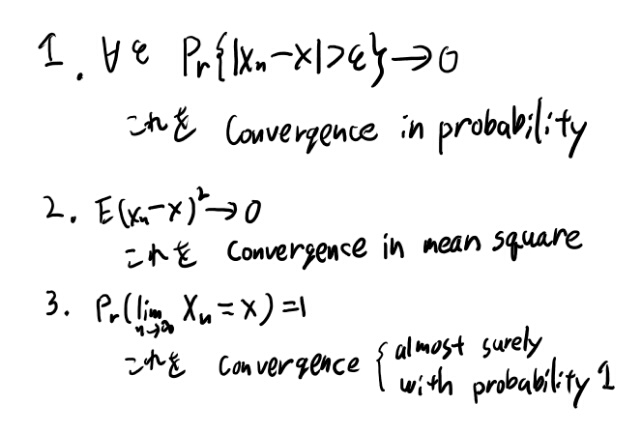 1. ∀ε Pr{|Xn-X|>ε}→0
これを Convergence in probability
2. E(Xn-X)²→0
これを Convergence in mean square
3. Pr(lim n→∞ Xn=X)=1
これを Convergence { almost surely
with probability 1